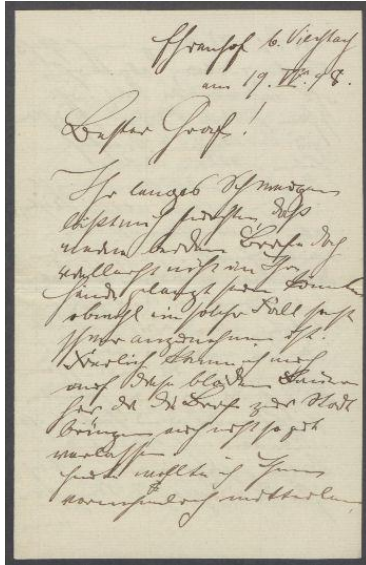 Ehrenhof b. Viechtach
am 19. VI. 98.
Bester Graf!
Ihr langes Schweigen
läßt mich fürchten, daß
meine beiden Briefe doch
vielleicht nicht in Ihre
Hände gelangt sein konnten
obwohl ein solcher Fall fast
schwer anzunehmen ist.
Freilich kann ich mich
auf diese blöden Bauern
her die die Briefe zur Stadt
bringen auch nicht so gut
verlassen.
Heute wollte ich Ihnen
vornehmlich mitteilen,